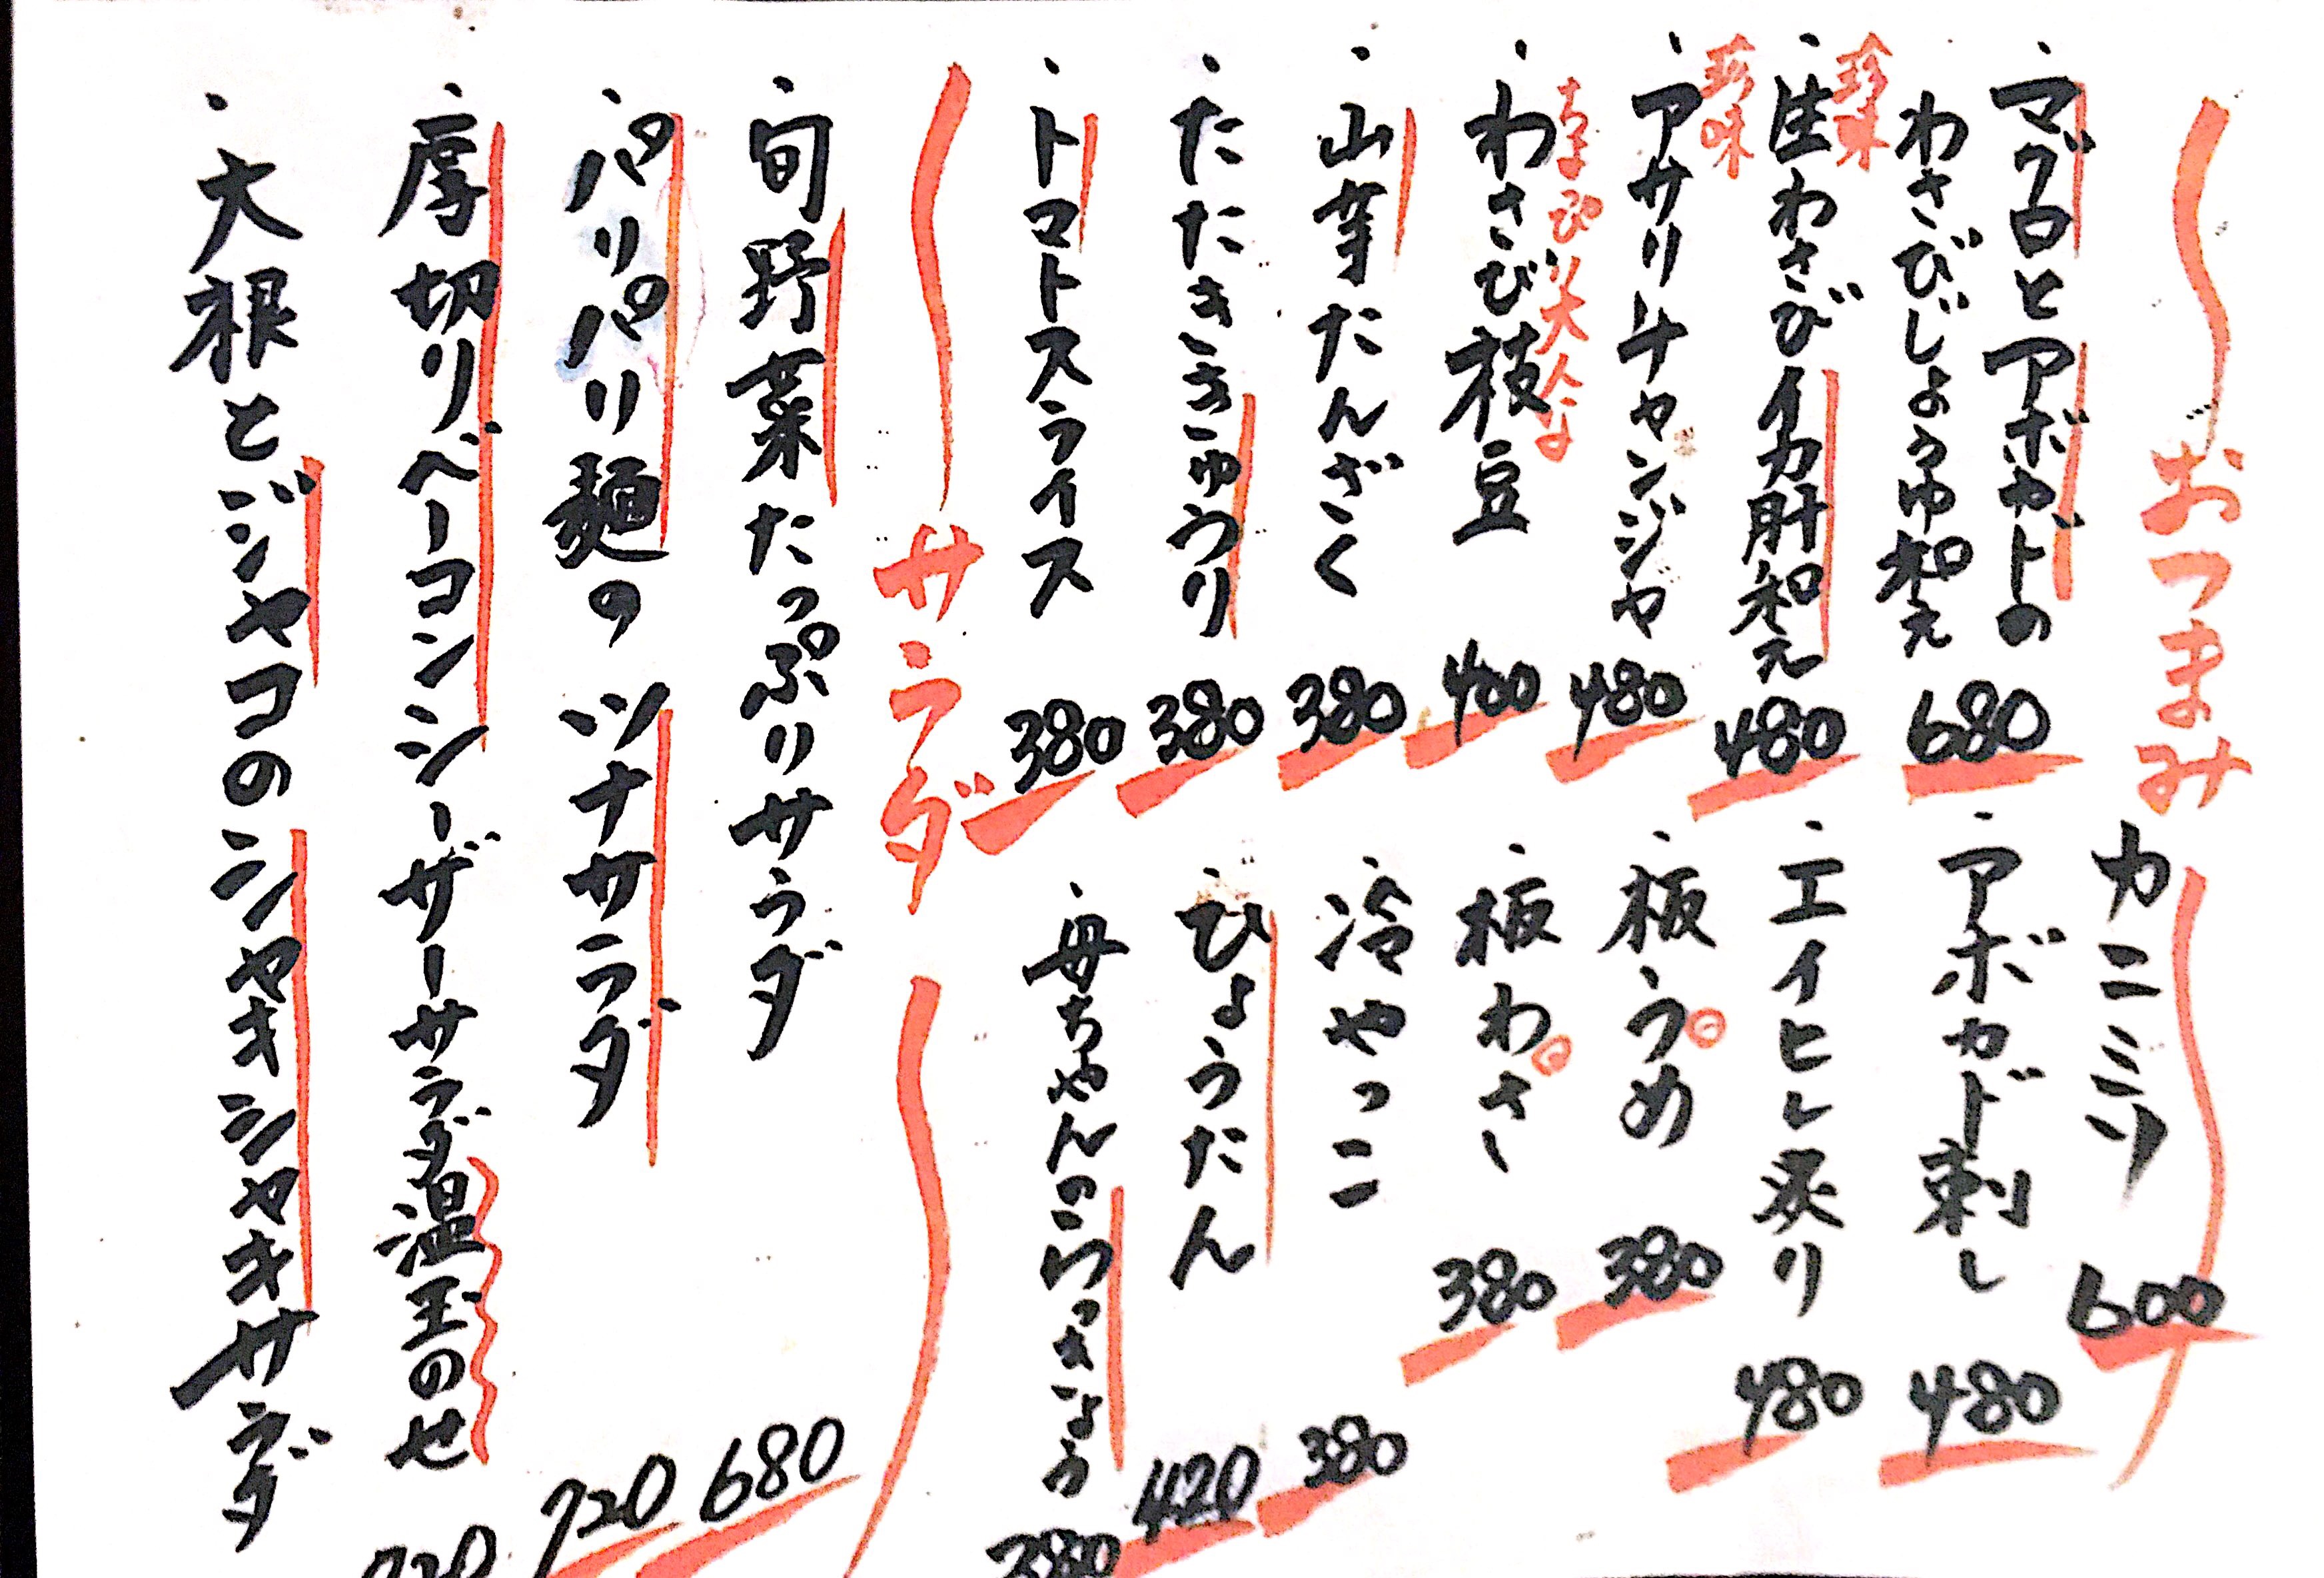 おつまみ
マグロとアボカドの
わさびじょうゆ和え
680
珍味
生わさびイカ肝和え
480
珍味
アサリチャンジャ
480
わさび枝豆
480
山芋たんざく
380
たたききゅうり
380
トマトスライス
380
カニミソ
600
アボカド刺し
480
エイヒレ炙り
480
板うめ
380
板わさ
380
冷やっこ
380
ひょうたん
420
母ちゃんのらっきょう
380
サラダ
旬野菜たっぷりサラダ
680
パリパリ麺のツナサラダ
720
厚切りベーコンシーザーサラダ温玉のせ
720
大根とジャコのシャキシャキサラダ